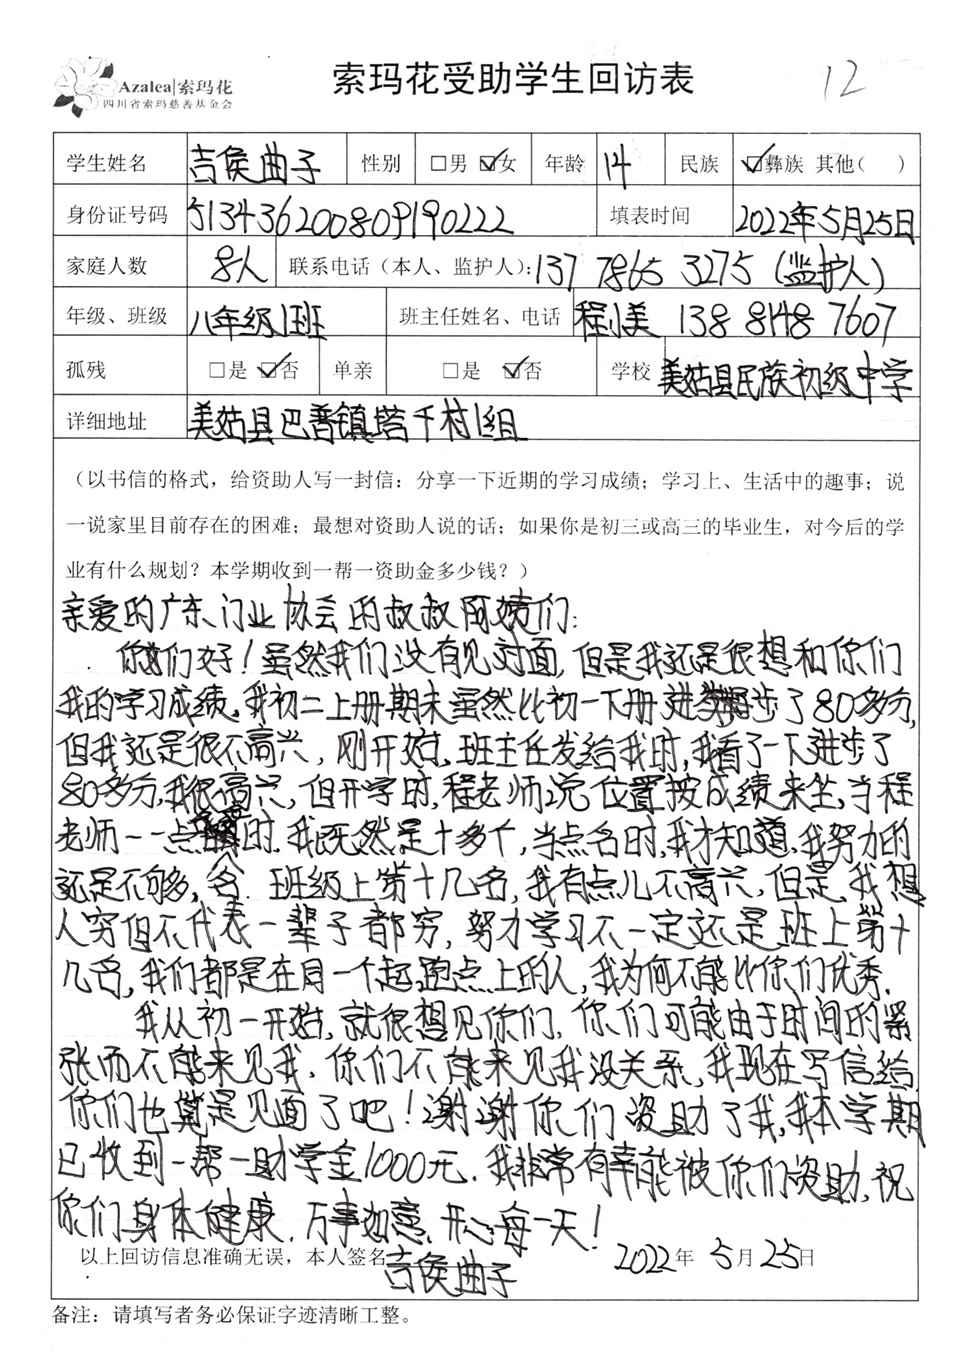 Azalea|索玛花
四川省索玛慈善基金会
索玛花受助学生回访表
12
学生姓名 吉侯曲子 性别 □男 ☑女 年龄 14 民族 ☑彝族 其他( )
身份证号码 513436200809190222 填表时间 2022年5月25日
家庭人数 8人 联系电话（本人、监护人）：137 7865 3275（监护人）
年级、班级 八年级1班 班主任姓名、电话 程小美 138 8148 7607
孤残 □是 ☑否 单亲 □是 ☑否 学校 美姑县民族初级中学
详细地址 美姑县巴普镇塔千村1组
（以书信的格式，给资助人写一封信：分享一下近期的学习成绩；学习上、生活中的趣事；说
一说家里目前存在的困难；最想对资助人说的话；如果你是初三或高三的毕业生，对今后的学
业有什么规划？本学期收到一帮一资助金多少钱？）
亲爱的广东门业协会的叔叔阿姨们：
你们好！虽然我们没有见过面，但是我还是很想和你们
我的学习成绩。我初二上册期末虽然比初一下册进步了80多分，
但我还是很不高兴，刚开始，班主任发给我时，我看了一下进步了
80多分，我很高兴，但开学时，程老师说位置按成绩来坐，当程
老师一一点名时，我既然是十多个，当点名时，我才知道，我努力的
还是不够，班级上第十几名，我有点儿不高兴，但是，我想
人穷但不代表一辈子都穷，努力学习不一定还是班上第十
几名，我们都是在同一个起跑点上的人，我为何不能比你们优秀。
我从初一开始，就很想见你们，你们可能由于时间的紧
张而不能来见我，你们不能来见我没关系，我现在写信给
你们也算是见面了吧！谢谢你们资助了我，我本学期
已收到一帮一助学金1000元，我非常有幸能被你们资助，祝
你们身体健康，万事如意，开心每一天！
以上回访信息准确无误，本人签名 吉侯曲子 2022年 5月 25日
备注：请填写者务必保证字迹清晰工整。